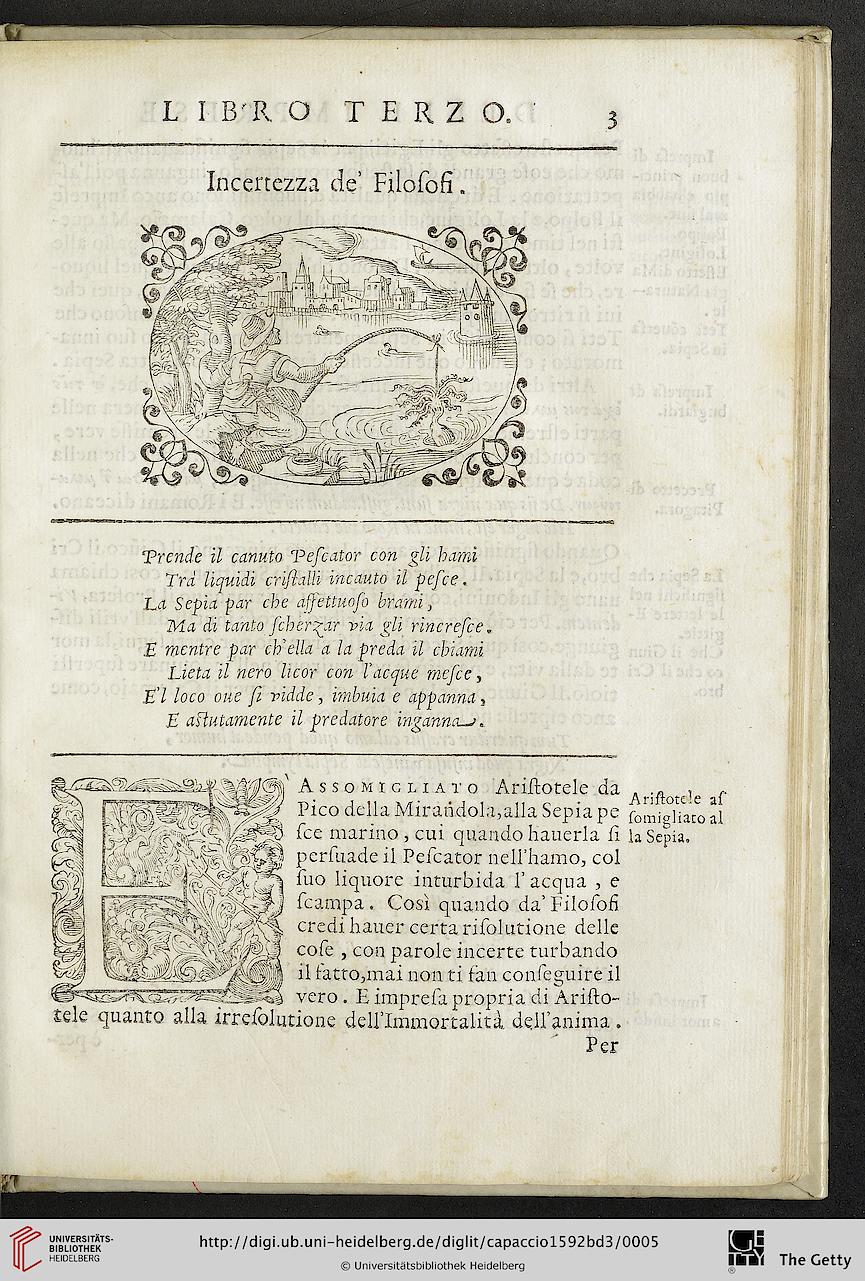 LIBRO TERZO. 3
Incertezza de' Filoſofi.
Prende il canuto Peſcator con gli hami
Trà liquidi criſtalli incauto il peſce.
La Sepia par che affettuoſo brami,
Ma di tanto ſcherzar via gli rincreſce.
E mentre par ch'ella a la preda il chiami
Lieta il nero licor con l'acque meſce,
E'l loco oue ſi vidde, imbuia e appanna,
E aſtutamente il predatore inganna.
E' ASSOMIGLIATO Ariſtotele da
Pico della Mirandola, alla Sepia pe
ſce marino, cui quando hauerla ſi
perſuade il Peſcator nell'hamo, col
ſuo liquore inturbida l'acqua, e
ſcampa. Così quando da' Filoſofi
credi hauer certa riſolutione delle
coſe, con parole incerte turbando
il fatto, mai non ti fan conſeguire il
vero. E impreſa propria di Ariſto-
tele quanto alla irreſolutione dell'Immortalità dell'anima.
Per
Ariſtotele aſ
ſomigliato al
la Sepia.
UNIVERSITÄTS-
BIBLIOTHEK
HEIDELBERG
http://digi.ub.uni-heidelberg.de/diglit/capaccio1592bd3/0005
© Universitätsbibliothek Heidelberg
The Getty